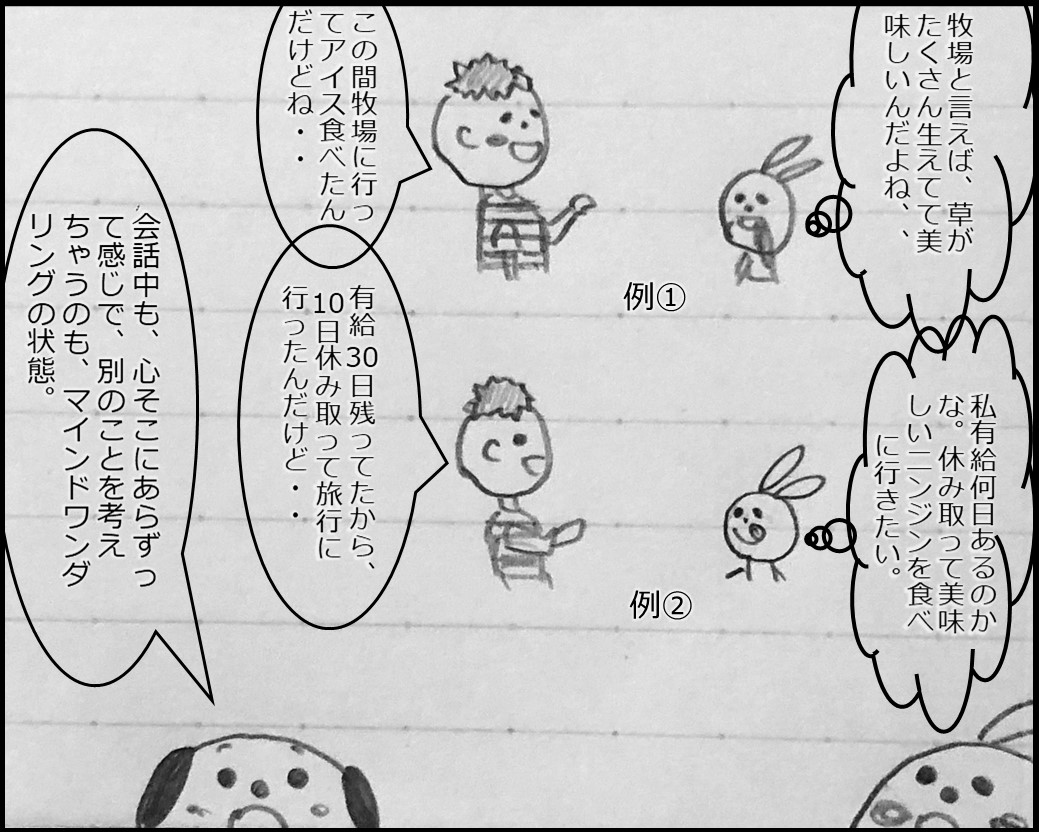 牧場と言えば、草が
たくさん生えてて美
味しいんだよね、、
この間牧場に行っ
てアイス食べたん
だけどね・・
例①
私有給何日あるのか
な。休み取って美味
しいニンジンを食べ
に行きたい。
有給30日残ってたから、
10日休み取って旅行に
行ったんだけど・・
例②
会話中も、心そこにあらずっ
て感じで、別のことを考え
ちゃうのも、マインドワンダ
リングの状態。